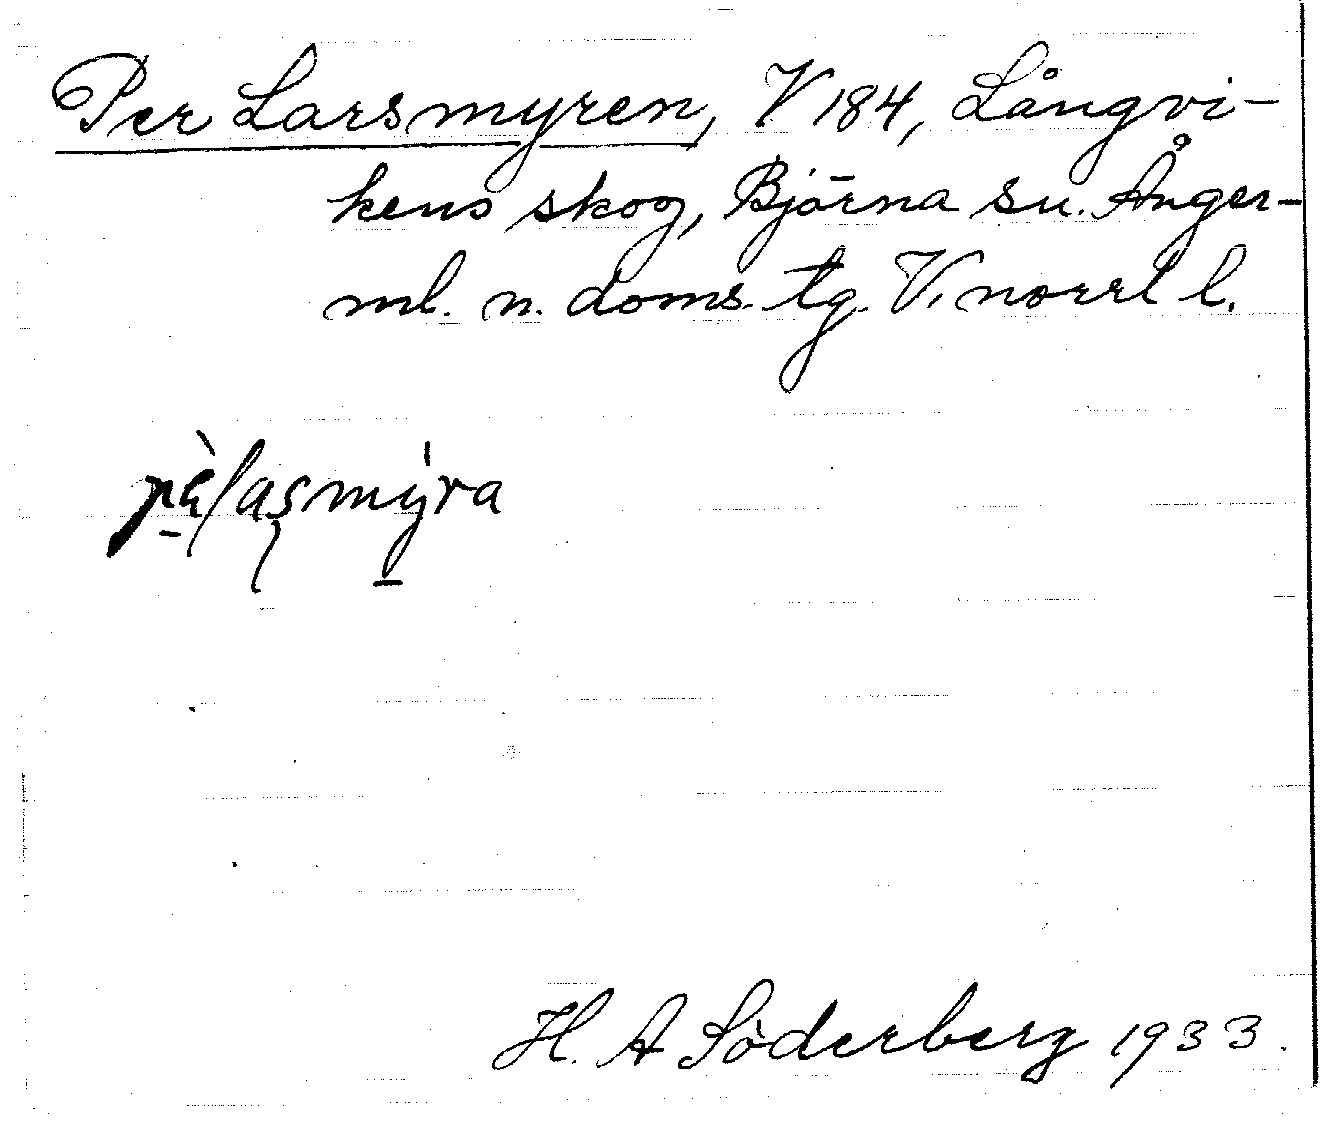 Per Larsmyren, V 184, Långvi-
kens skog, Björna sn. Ånger-
ml. n. doms. tg. V. norrl l.
pàlasmýra
H. A Söderberg 1933.